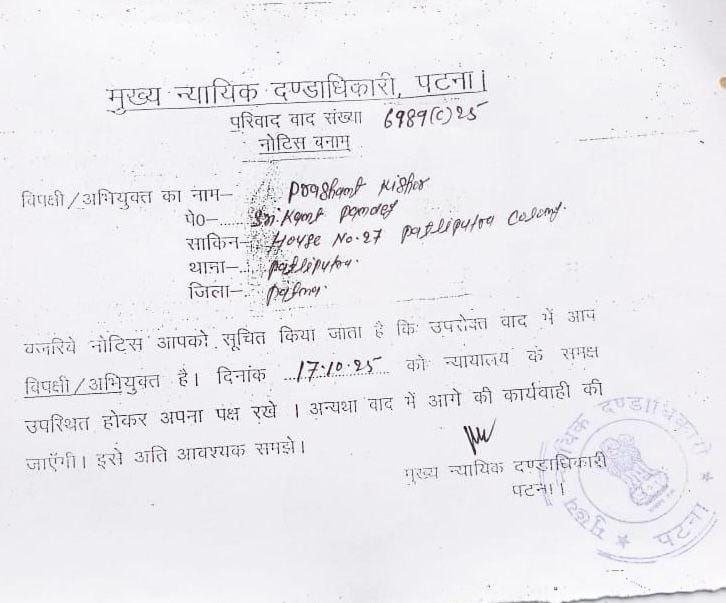 मुख्य न्यायिक दण्डाधिकारी, पटना।
परिवाद वाद संख्या 6989(c)25
नोटिस बनाम्
विपक्षी/अभियुक्त का नाम- Prashant Kishor
पे0-..... Sri. Kant Pandey
साकिन- House No. 27 Patliputra Colony.
थाना-.... Patliputra.
जिला-.... Patna.
वजरिये नोटिस आपको सूचित किया जाता है कि उपरोक्त वाद में आप
विपक्षी/अभियुक्त है। दिनांक ...17.10.25..... को न्यायालय के समक्ष
उपस्थित होकर अपना पक्ष रखे । अन्यथा वाद में आगे की कार्यवाही की
जाएँगी। इसे अति आवश्यक समझे।
मुख्य न्यायिक दण्डाधिकारी
पटना।।
मुख्य न्यायिक दण्डाधिकारी
पटना